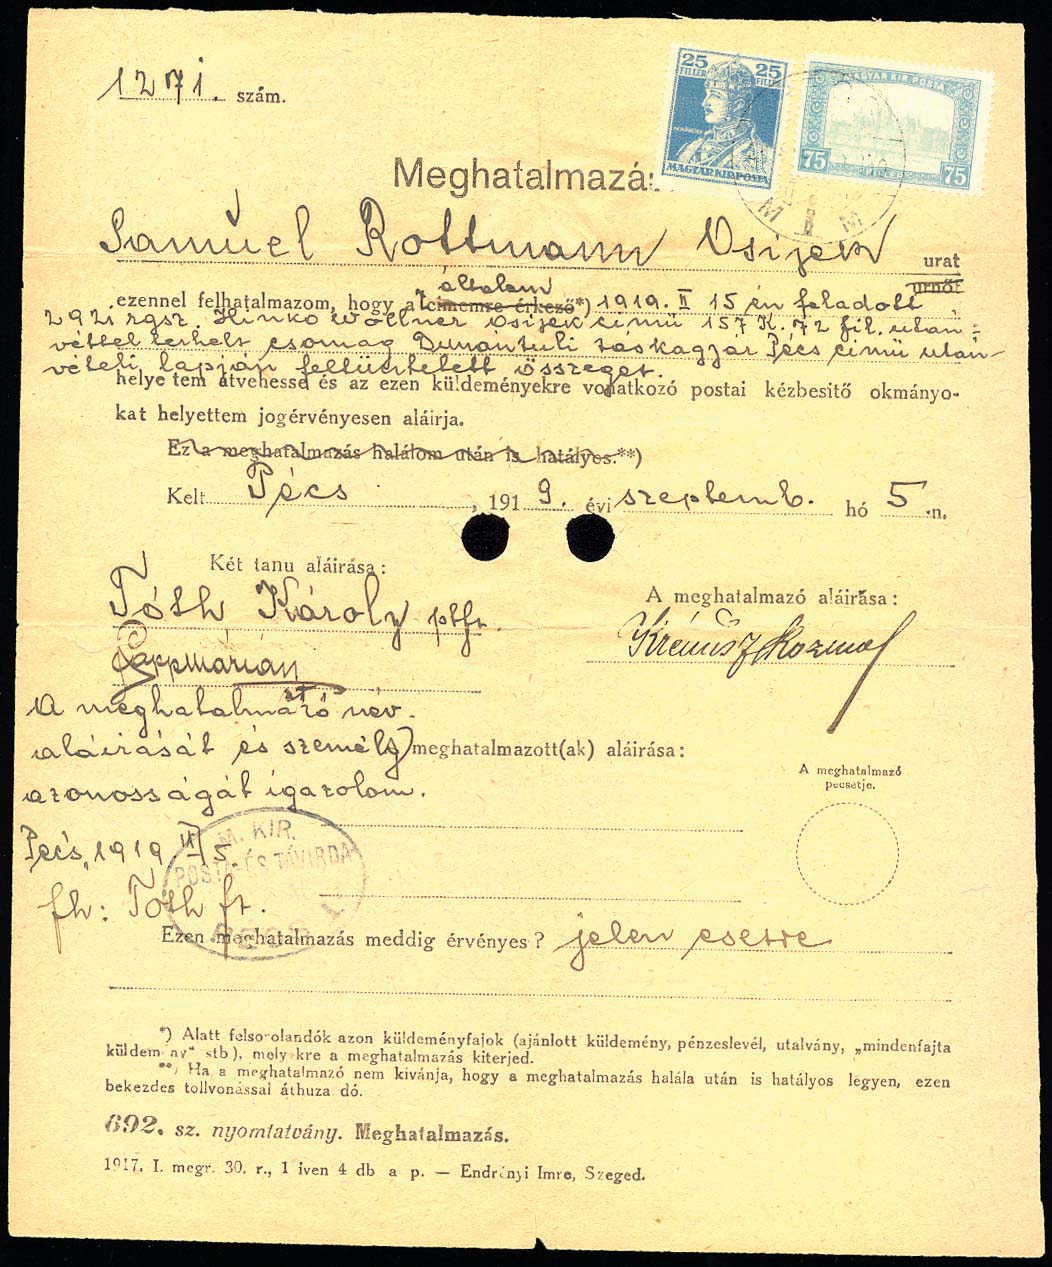 1271. szám.
25 FILLÉR 25 FILLÉR
MAGYAR KIR. POSTA
MAGYAR KIR. POSTA
75 75
Meghatalmazás
Samuel Rottmann Osijek urat
urnőt
általam
ezennel felhatalmazom, hogy a cimemre érkező*) 1919. II 15 én feladott
292 rgsz. Hinko Wollner Osijek cimü 157 K. 72 fil.után-
véttel terhelt csomag Dunantuli Pécs cimü után-
vételi lapján feltüntetett összeget.
helyettem átvehesse és az ezen küldeményekre vonatkozó postai kézbesitő okmányo-
kat helyettem jogérvényesen aláirja.
Ez a meghatalmazás halálom után is hatályos.**)
Kelt Pécs, 1919. évi szeptemb. hó 5-n.
Két tanu aláirása:
A meghatalmazó aláirása:
Tóth Károly
A meghatalmazó név
aláirását és személy meghatalmazott(ak) aláirása:
azonosságát igazolom.
A meghatalmazó
pecsétje.
Pécs, 1919 5.
M. KIR.
POSTA- ÉS TÁVIRDA
PÉCS 1
fh: Tóth ft.
Ezen meghatalmazás meddig érvényes? jelen esetre
*) Alatt felsorolandók azon küldeményfajok (ajánlott küldemény, pénzeslevél, utalvány, „mindenfajta
küldemény" stb), melyekre a meghatalmazás kiterjed.
**) Ha a meghatalmazó nem kivánja, hogy a meghatalmazás halála után is hatályos legyen, ezen
bekezdes tollvonással áthuza dó.
692. sz. nyomtatvány. Meghatalmazás.
1917. I. megr. 30. r., 1 iven 4 db a p. — Endrényi Imre, Szeged.